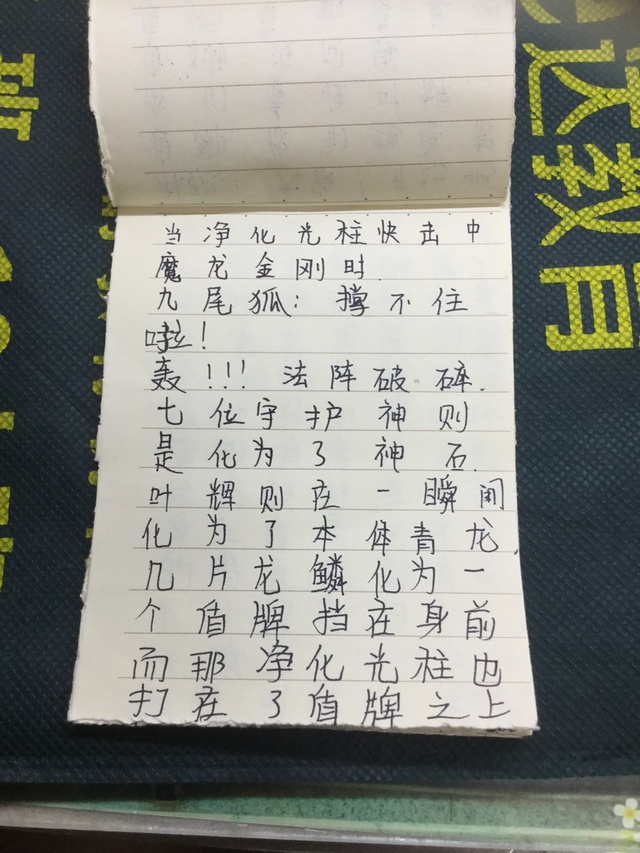 当净化光柱快击中
魔龙金刚时.
九尾狐：撑不住
啦！
轰！！！法阵破碎.
七位守护神则
是化为了神石.
叶辉则在一瞬间
化为了本体青龙
几片龙鳞化为一
个盾牌挡在身前
而那净化光柱也
打在了盾牌之上
达教育
班